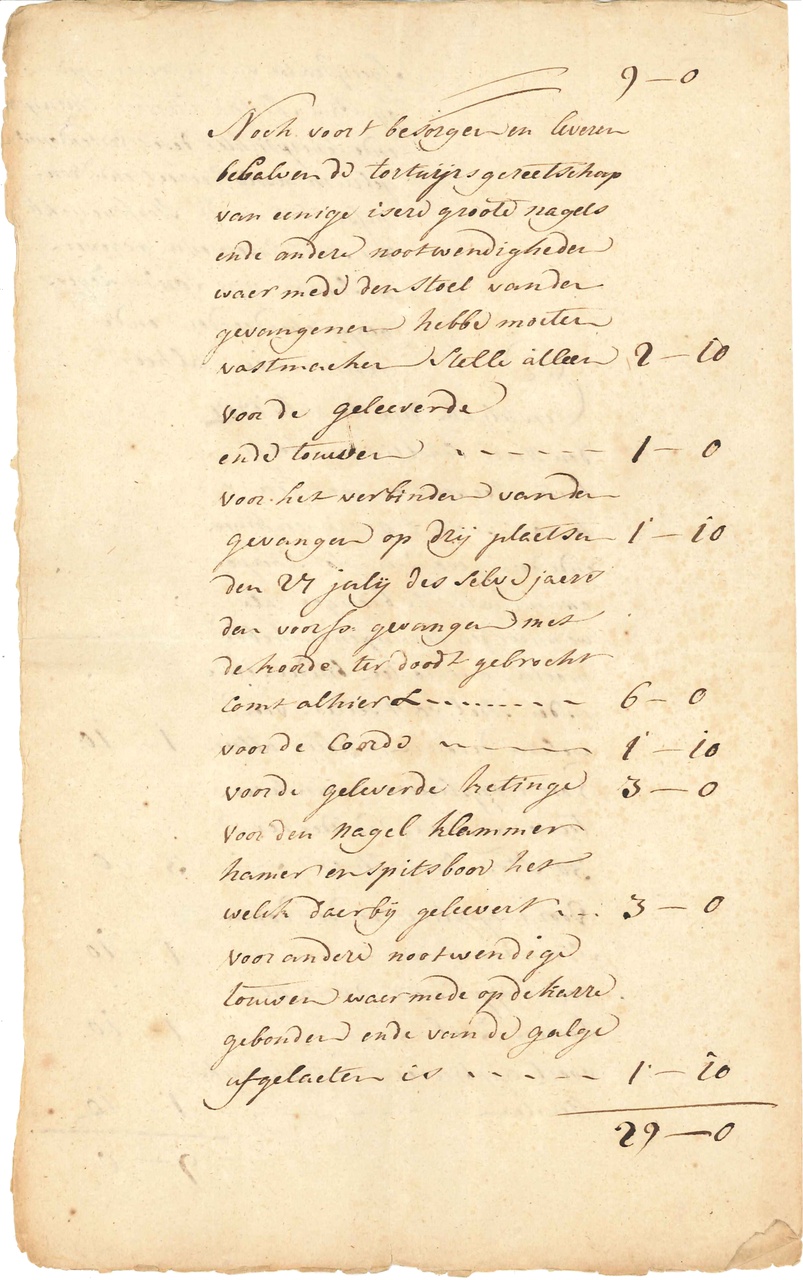 9 — 0
Noch voort besorgen en leveren
behalven de tortuijrsgereetschap
van eenige isere groote nagels
ende andere nootwendigheden
waer mede den stoel vanden
gevangenen hebbe moeten
vastmachen stelle alleen 2 — 10
voor de geleeverde
ende touwen - - - - - 1 — 0
voor het verbinden vanden
gevangen op drij plaetsen 1 — 10
den 27 julij des selve jaers
den voors. gevangen met
de koorde ter doodt gebrocht
comt alhier - - - - - - 6 — 0
voor de coorde - - - - 1 — 10
voor de geleverde ketinge 3 — 0
voor den nagel klammer
hamer en spitsboor het
welck daerbij geleevert . . . 3 — 0
voor andere nootwendige
touwen waermede op de karre
gebonden ende van de galge
afgelaeten is - - - - - 1 — 10
29 — 0